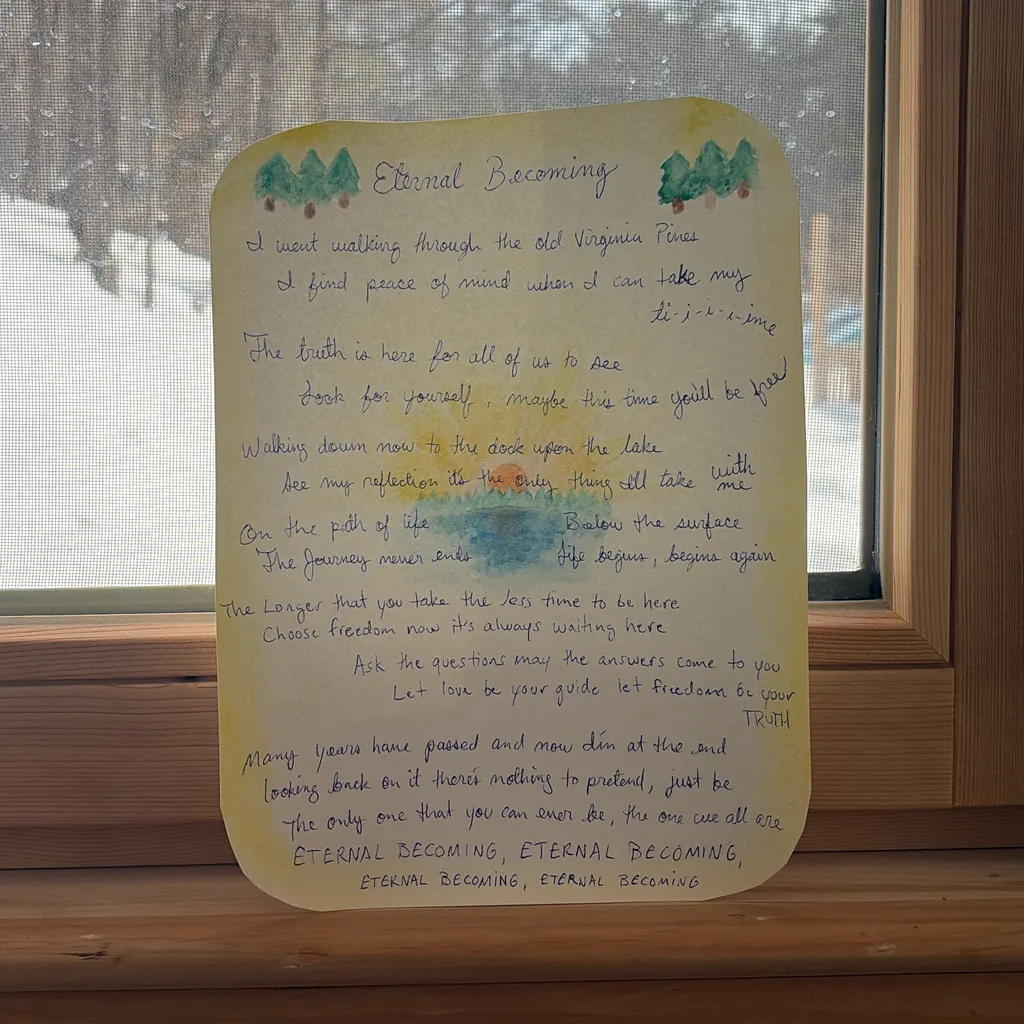 Eternal Becoming
I went walking through the old Virginia Pines
I find peace of mind when I can take my
ti-i-i-i-ime
The truth is here for all of us to see
Look for yourself, maybe this time you'll be free
Walking down now to the dock upon the lake
See my reflection it's the only thing I'll take with me
On the path of life
The Journey never ends
Below the surface
Life begins, begins again
The Longer that you take the less time to be here
Choose freedom now it's always waiting here
Ask the questions may the answers come to you
Let love be your guide let freedom be your
TRUTH
Many years have passed and now I'm at the end
looking back on it there's nothing to pretend, just be
The only one that you can ever be, the one we all are
ETERNAL BECOMING, ETERNAL BECOMING,
ETERNAL BECOMING, ETERNAL BECOMING